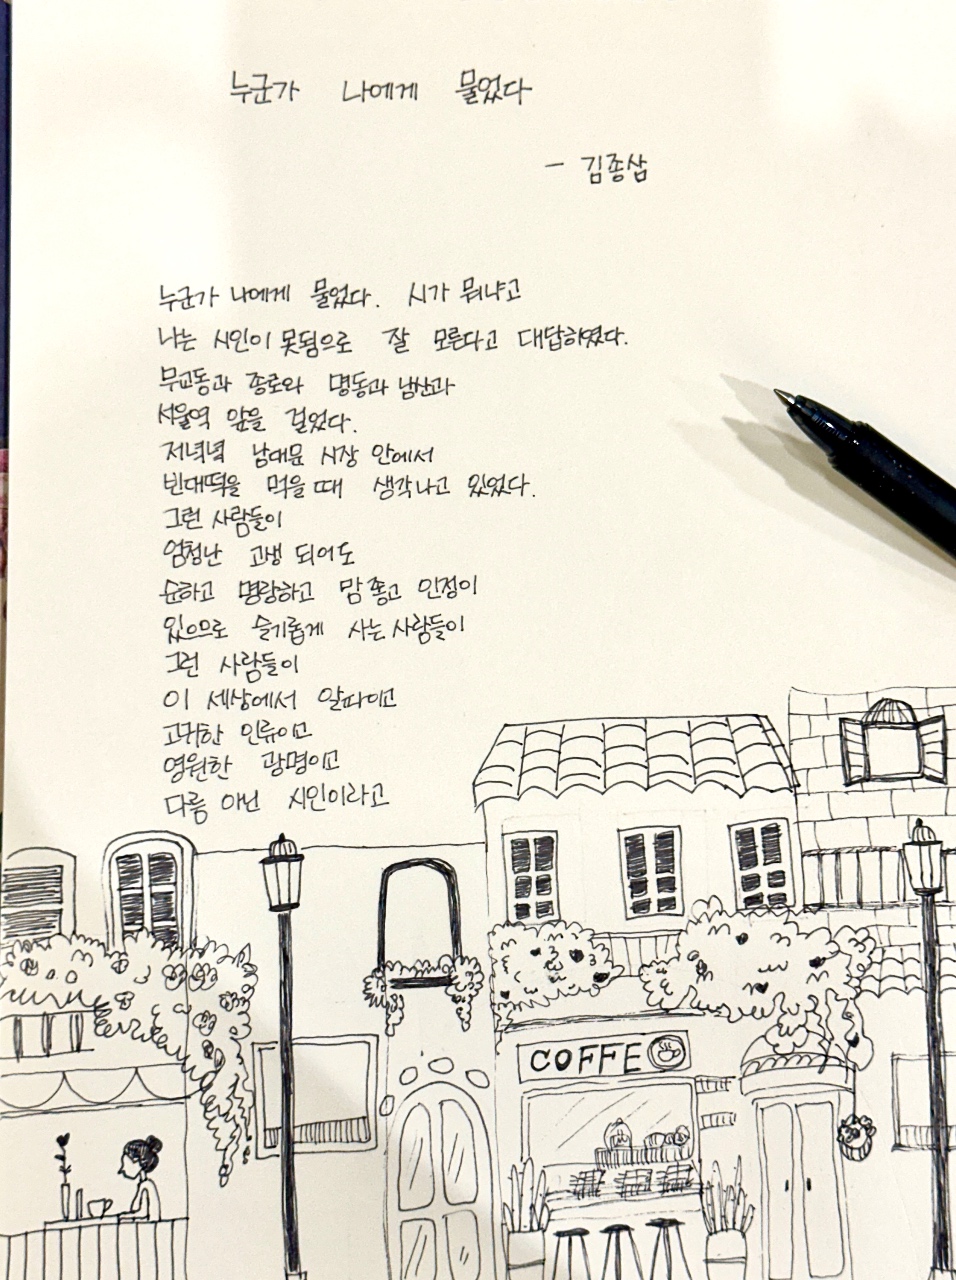 누군가 나에게 물었다
- 김종삼
누군가 나에게 물었다. 시가 뭐냐고
나는 시인이 못됨으로 잘 모른다고 대답하였다.
무교동과 종로와 명동과 남산과
서울역 앞을 걸었다.
저녁녘 남대문 시장 안에서
빈대떡을 먹을 때 생각나고 있었다.
그런 사람들이
엄청난 고생 되어도
순하고 명랑하고 맘 좋고 인정이
있으므로 슬기롭게 사는 사람들이
그런 사람들이
이 세상에서 알파이고
고귀한 인류이고
영원한 광명이고
다름 아닌 시인이라고
COFFE